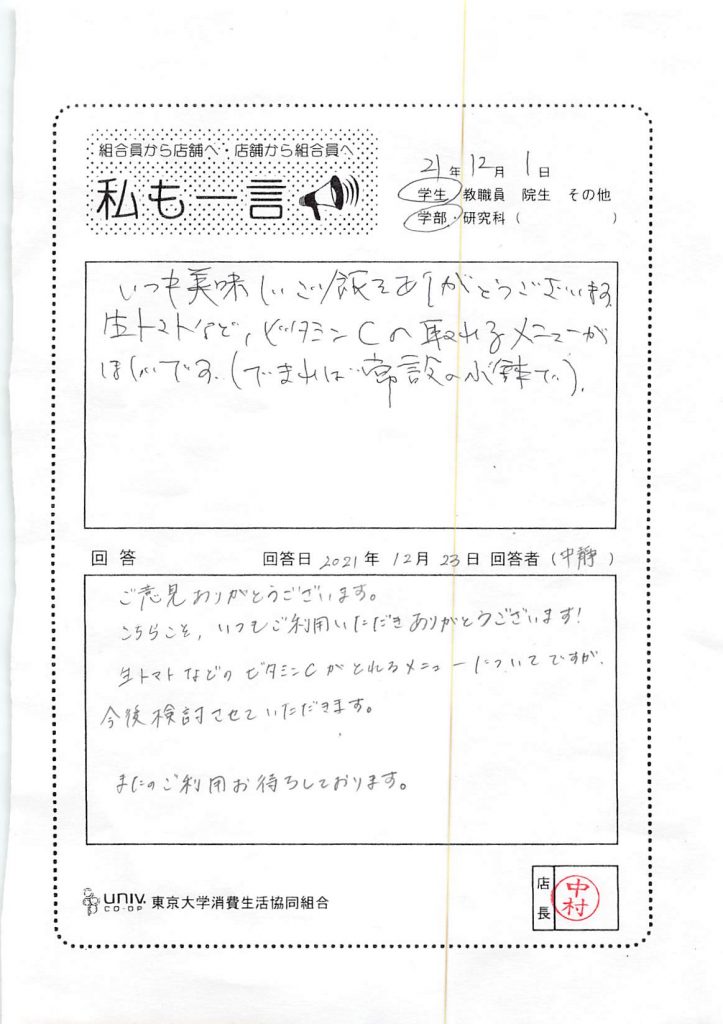 組合員から店舗へ・店舗から組合員へ
私も一言
21年 12月 1日
学生 教職員 院生 その他
学部・研究科（ ）
いつも美味しいご飯をありがとうございます。
生トマトなど、ビタミンCの取れるメニューが
ほしいです。(できれば常設の小鉢で).
回答 回答日 2021年 12月 23日 回答者（中静）
ご意見ありがとうございます。
こちらこそ、いつもご利用いただきありがとうございます!
生トマトなどのビタミンCがとれるメニューについてですが、
今後検討させていただきます。
またのご利用お待ちしております。
UNIV.
CO-OP
東京大学消費生活協同組合
店長
中村